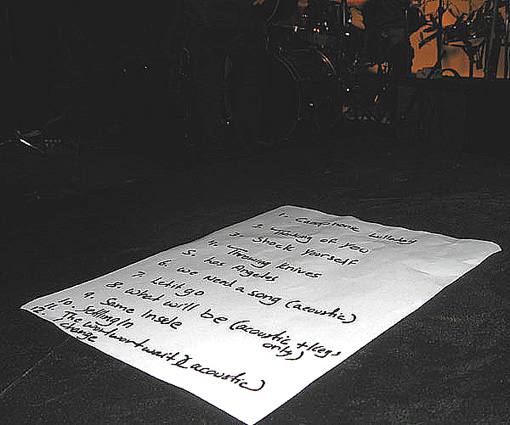 1. Camphone Lullaby
2. Thinking of you
3. Shock yourself
4. Throwing knives
5. Los Angeles
6. We need a song (acoustic)
7. Let it go
8. What will be (acoustic + keys
only)
9. Same Inside
10. Settling In
11. The world won't wait (acoustic)
12. Change